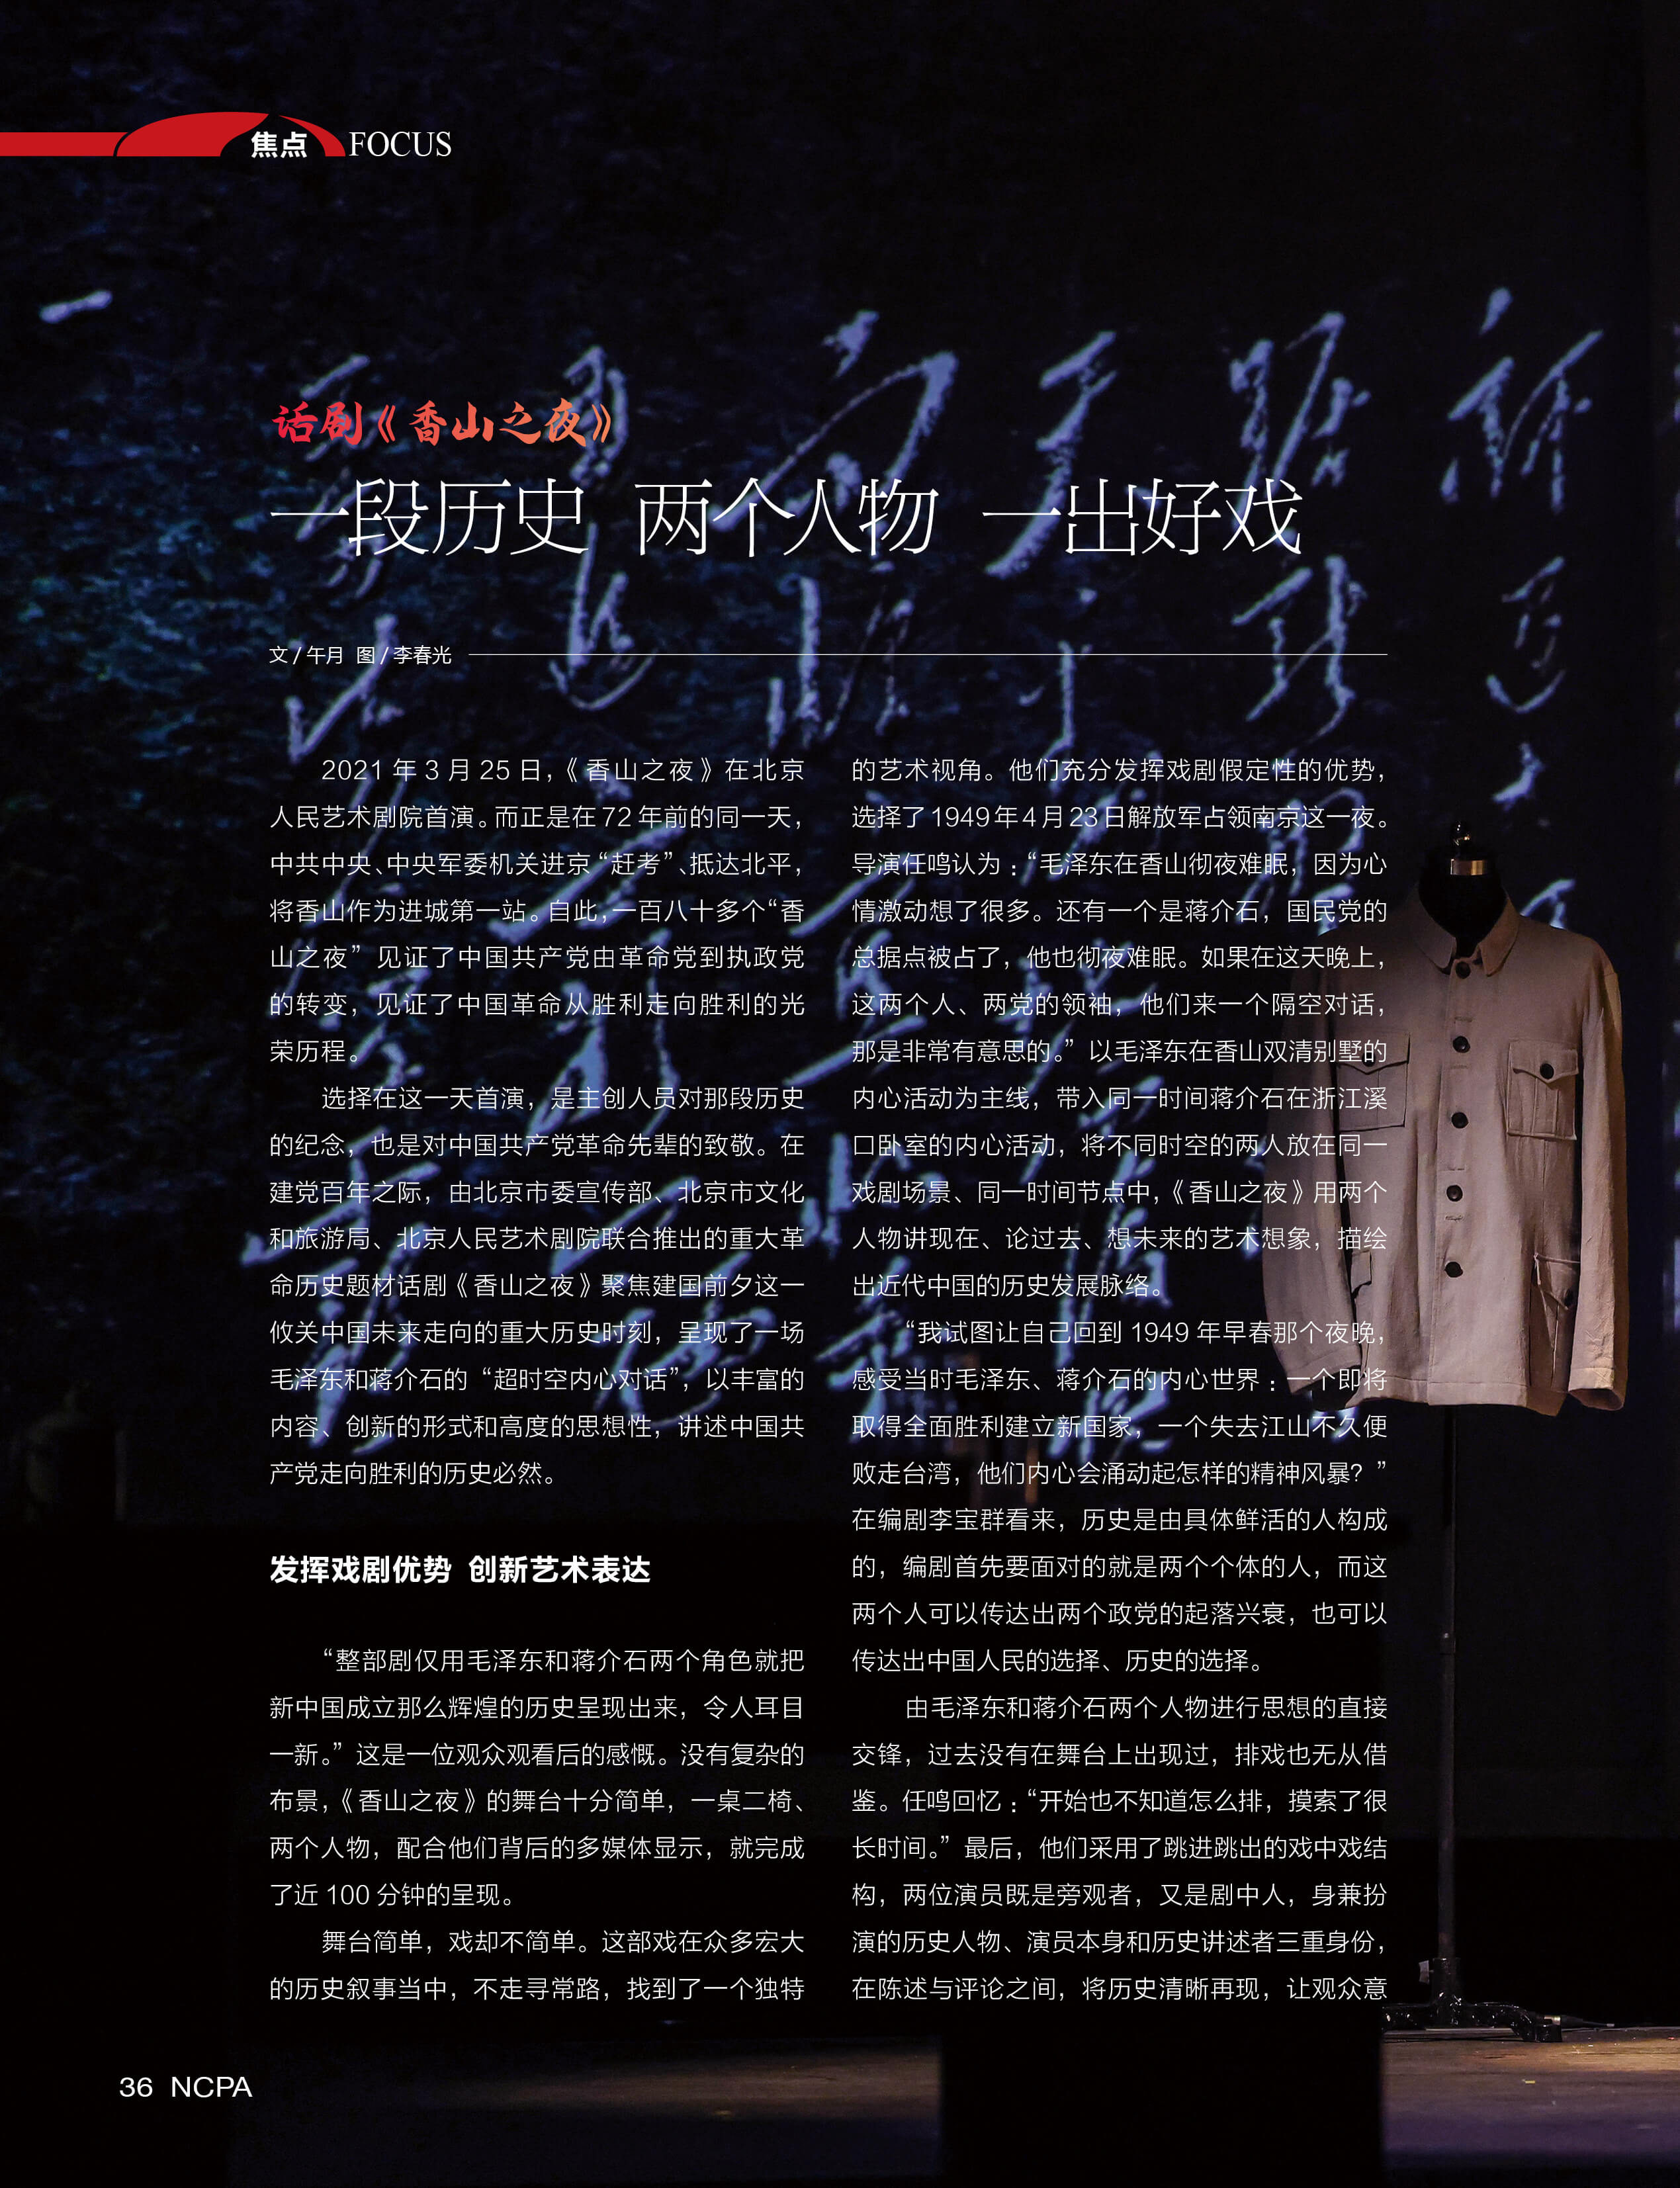 焦点 FOCUS
话剧《香山之夜》
一段历史 两个人物 一出好戏
文 / 午月 图 / 李春光
2021 年 3 月 25 日，《香山之夜》在北京
人民艺术剧院首演。而正是在 72 年前的同一天，
中共中央、中央军委机关进京“赶考”、抵达北平，
将香山作为进城第一站。自此，一百八十多个“香
山之夜”见证了中国共产党由革命党到执政党
的转变，见证了中国革命从胜利走向胜利的光
荣历程。
选择在这一天首演，是主创人员对那段历史
的纪念，也是对中国共产党革命先辈的致敬。在
建党百年之际，由北京市委宣传部、北京市文化
和旅游局、北京人民艺术剧院联合推出的重大革
命历史题材话剧《香山之夜》聚焦建国前夕这一
攸关中国未来走向的重大历史时刻，呈现了一场
毛泽东和蒋介石的“超时空内心对话”，以丰富的
内容、创新的形式和高度的思想性，讲述中国共
产党走向胜利的历史必然。
发挥戏剧优势 创新艺术表达
“整部剧仅用毛泽东和蒋介石两个角色就把
新中国成立那么辉煌的历史呈现出来，令人耳目
一新。”这是一位观众观看后的感慨。没有复杂的
布景，《香山之夜》的舞台十分简单，一桌二椅、
两个人物，配合他们背后的多媒体显示，就完成
了近 100 分钟的呈现。
舞台简单，戏却不简单。这部戏在众多宏大
的历史叙事当中，不走寻常路，找到了一个独特
的艺术视角。他们充分发挥戏剧假定性的优势，
选择了 1949 年 4 月 23 日解放军占领南京这一夜。
导演任鸣认为：“毛泽东在香山彻夜难眠，因为心
情激动想了很多。还有一个是蒋介石，国民党的
总据点被占了，他也彻夜难眠。如果在这天晚上，
这两个人、两党的领袖，他们来一个隔空对话，
那是非常有意思的。”以毛泽东在香山双清别墅的
内心活动为主线，带入同一时间蒋介石在浙江溪
口卧室的内心活动，将不同时空的两人放在同一
戏剧场景、同一时间节点中，《香山之夜》用两个
人物讲现在、论过去、想未来的艺术想象，描绘
出近代中国的历史发展脉络。
“我试图让自己回到 1949 年早春那个夜晚，
感受当时毛泽东、蒋介石的内心世界：一个即将
取得全面胜利建立新国家，一个失去江山不久便
败走台湾，他们内心会涌动起怎样的精神风暴？”
在编剧李宝群看来，历史是由具体鲜活的人构成
的，编剧首先要面对的就是两个个体的人，而这
两个人可以传达出两个政党的起落兴衰，也可以
传达出中国人民的选择、历史的选择。
由毛泽东和蒋介石两个人物进行思想的直接
交锋，过去没有在舞台上出现过，排戏也无从借
鉴。任鸣回忆：“开始也不知道怎么排，摸索了很
长时间。”最后，他们采用了跳进跳出的戏中戏结
构，两位演员既是旁观者，又是剧中人，身兼扮
演的历史人物、演员本身和历史讲述者三重身份，
在陈述与评论之间，将历史清晰再现，让观众意
36 NCPA